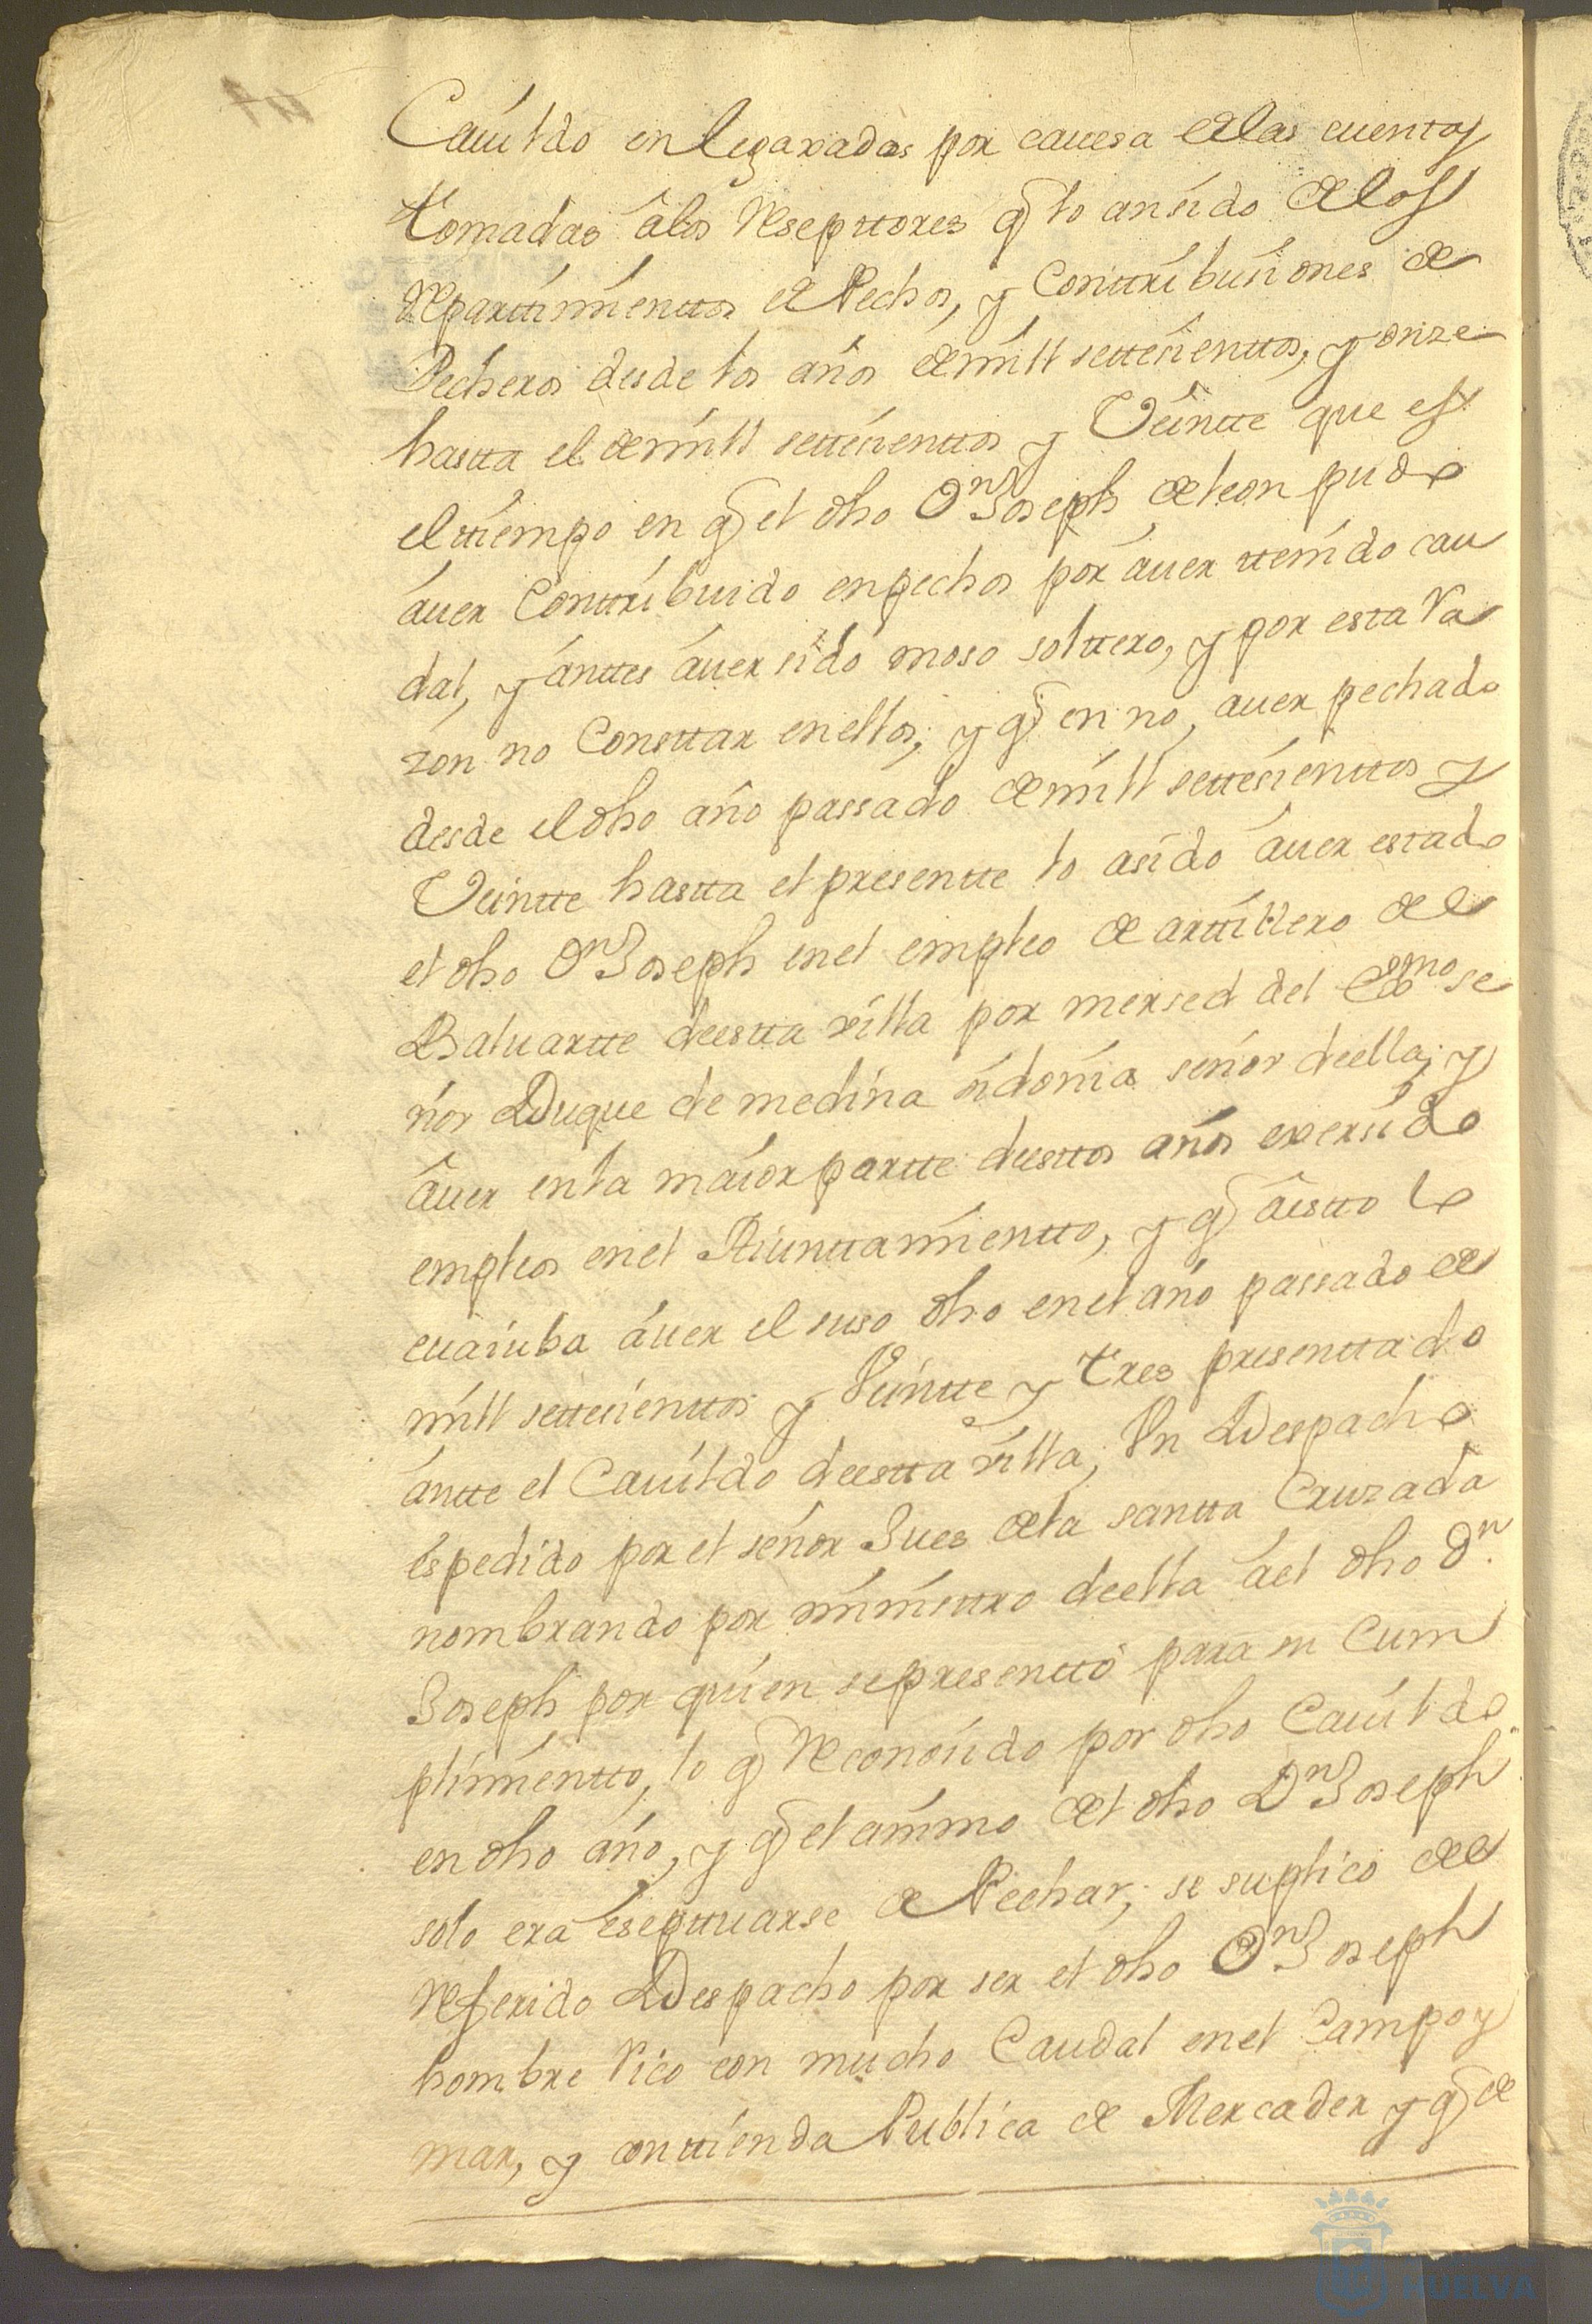 Cauildo enlegaxadas por cauesa de las cuentas
tomadas âlos Reseptores q̃ lo an sido de los
Repartimientos de Pechos, y Contribusiones de
Pecheros desde los años de mill settesienttos, y onze
hasta el de mill settesienttos y Veintte que es
el tiempo en q̃ el dho Dn Joseph de leon pudo
áuer Conttribuido en pechos por áuer ttenido cau
dal, y ánttes áuer sido moso solttero, y por esta Ra
zon no Consttar en ellos; y q̃ en no auer pechado
desde el dho año passado de mill settesienttos y
Veintte hasta el presentte lo a sido áuer estado
el dho Dn Joseph en el empleo de artillero del
Baluartte deesta villa por mersed del Exmo se
ñor Duque de medina sidonia señor deella; y
âuer en la maior partte deesttos años exersido
empleos en el Aiunttamientto, y q̃ âestto lo
cuaiuba áuer el suso dho en el año passado de
mill settesienttos y Veintte y tres presenttado
ántte el Cauildo deestta villa, Un Despacho
éspedido por el señor Jues de la santta Cruzada
nombrando por ministtro deella áel dho Dn.
Joseph por quien se presenttó para su Cum
plimientto, lo q̃ Reconosido por dho Cauildo
en dho año, y q̃ el animo del dho Dn Joseph
solo era éseptuarse de Pechar; se suplicó del
Referido Despacho por ser el dho Dn Joseph
hombre Rico con mucho Caudal en el Campo y
mar, y con ttienda Publica de Mercader y q̃ de
HUELVA